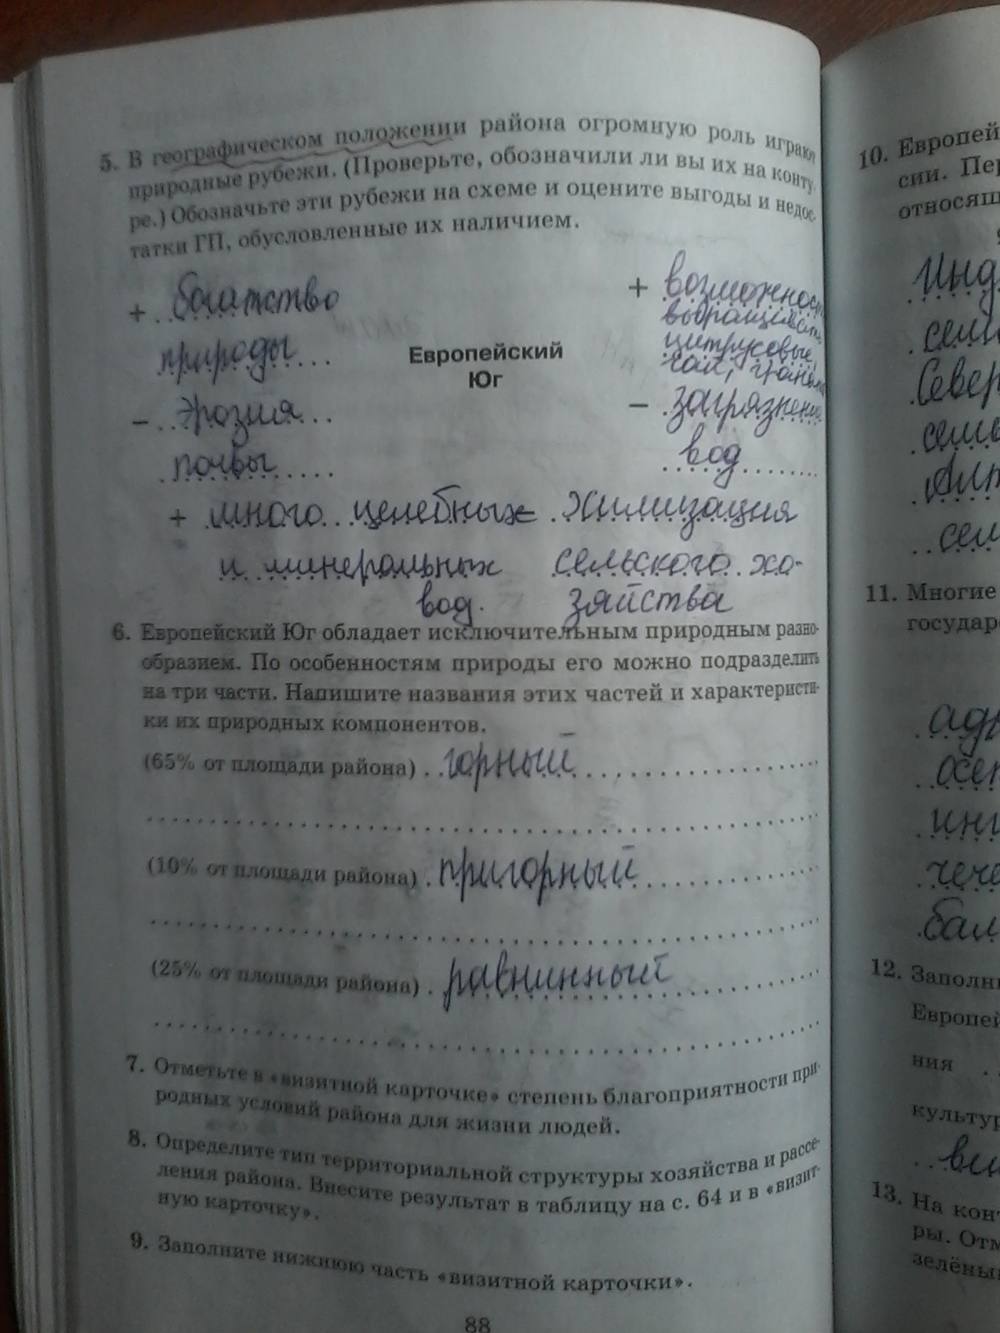 5. В географическом положении района огромную роль играют
природные рубежи. (Проверьте, обозначили ли вы их на конту-
ре.) Обозначьте эти рубежи на схеме и оцените выгоды и недос-
татки ГП, обусловленные их наличием.
+ богатство
природы
- эрозия
почвы
Европейский
Юг
+ возможность
выращивать
цитрусовые,
чай,
- загрязнение
вод
+ много целебных
и минеральных
вод.
- химизация
сельского хо-
зяйства
6. Европейский Юг обладает исключительным природным разно-
образием. По особенностям природы его можно подразделить
на три части. Напишите названия этих частей и характеристи-
ки их природных компонентов.
(65% от площади района) горный
(10% от площади района) пригорный
(25% от площади района) равнинный
7. Отметьте в «визитной карточке» степень благоприятности при-
родных условий района для жизни людей.
8. Определите тип территориальной структуры хозяйства и рассе-
ления района. Внесите результат в таблицу на с. 64 и в «визит-
ную карточку».
9. Заполните нижнюю часть «визитной карточки».
88
10. Европей
сии. Пер
относящ
Инд
семи
Север
семь
Алт
сем
11. Многие
государ
адь
осет
инг
чече
бал
12. Заполни
Европей
ния
культур
ви
13. На конт
ры. Отм
зелёным